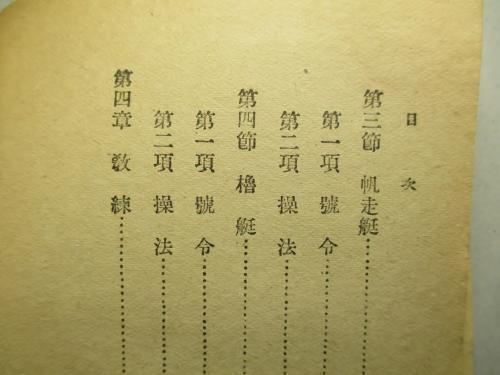 目次
第三節 帆走艇
第一項 號令
第二項 操法
第四節 櫓艇
第一項 號令
第二項 操法
第四章 敎練